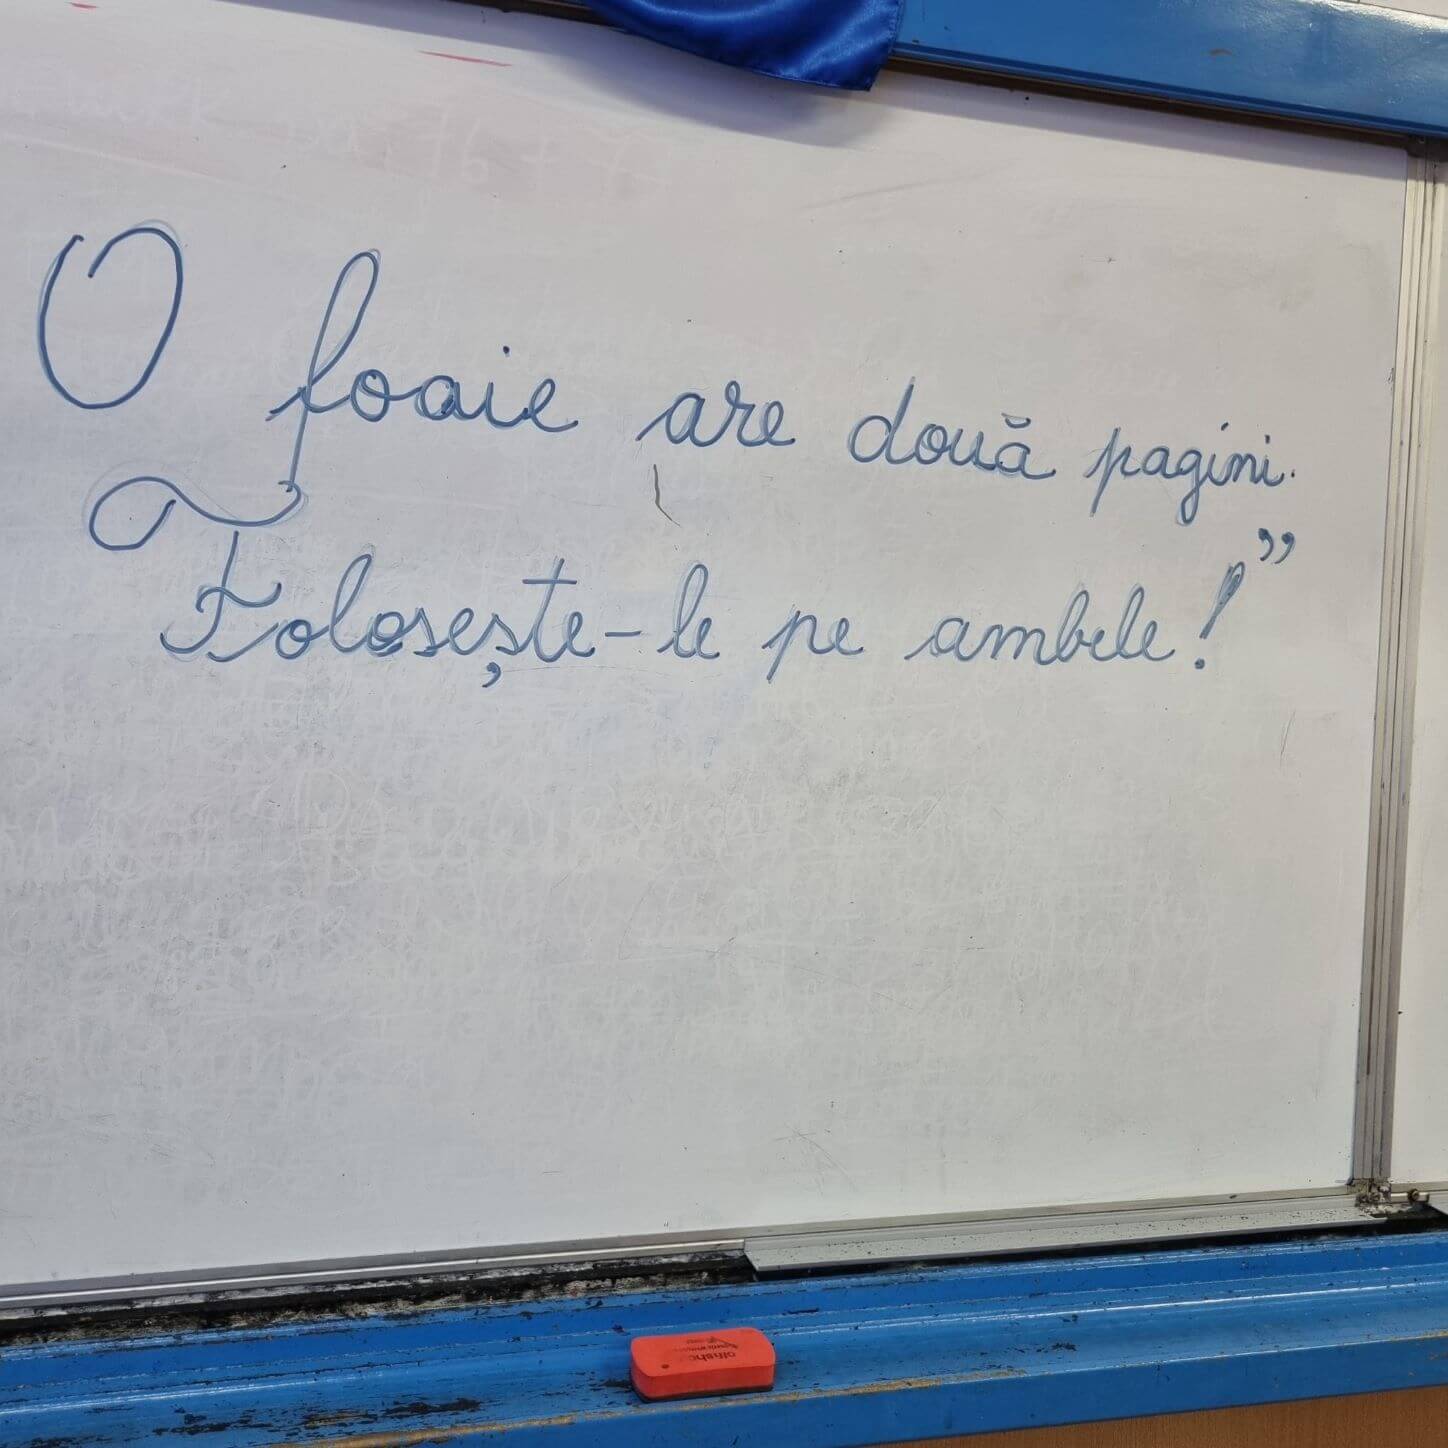 O foaie are două pagini.
Folosește-le pe ambele!”